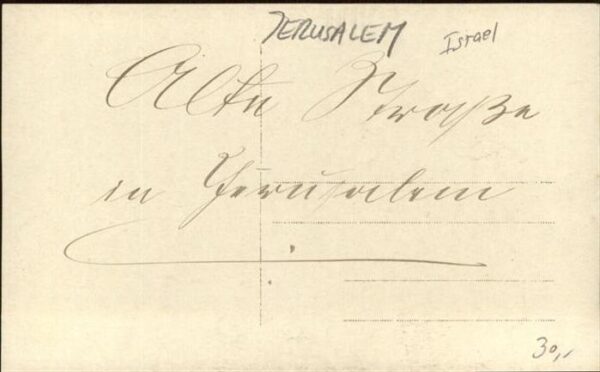 JERUSALEM
Israel
Alte Straße
in Jerusalem
30,-